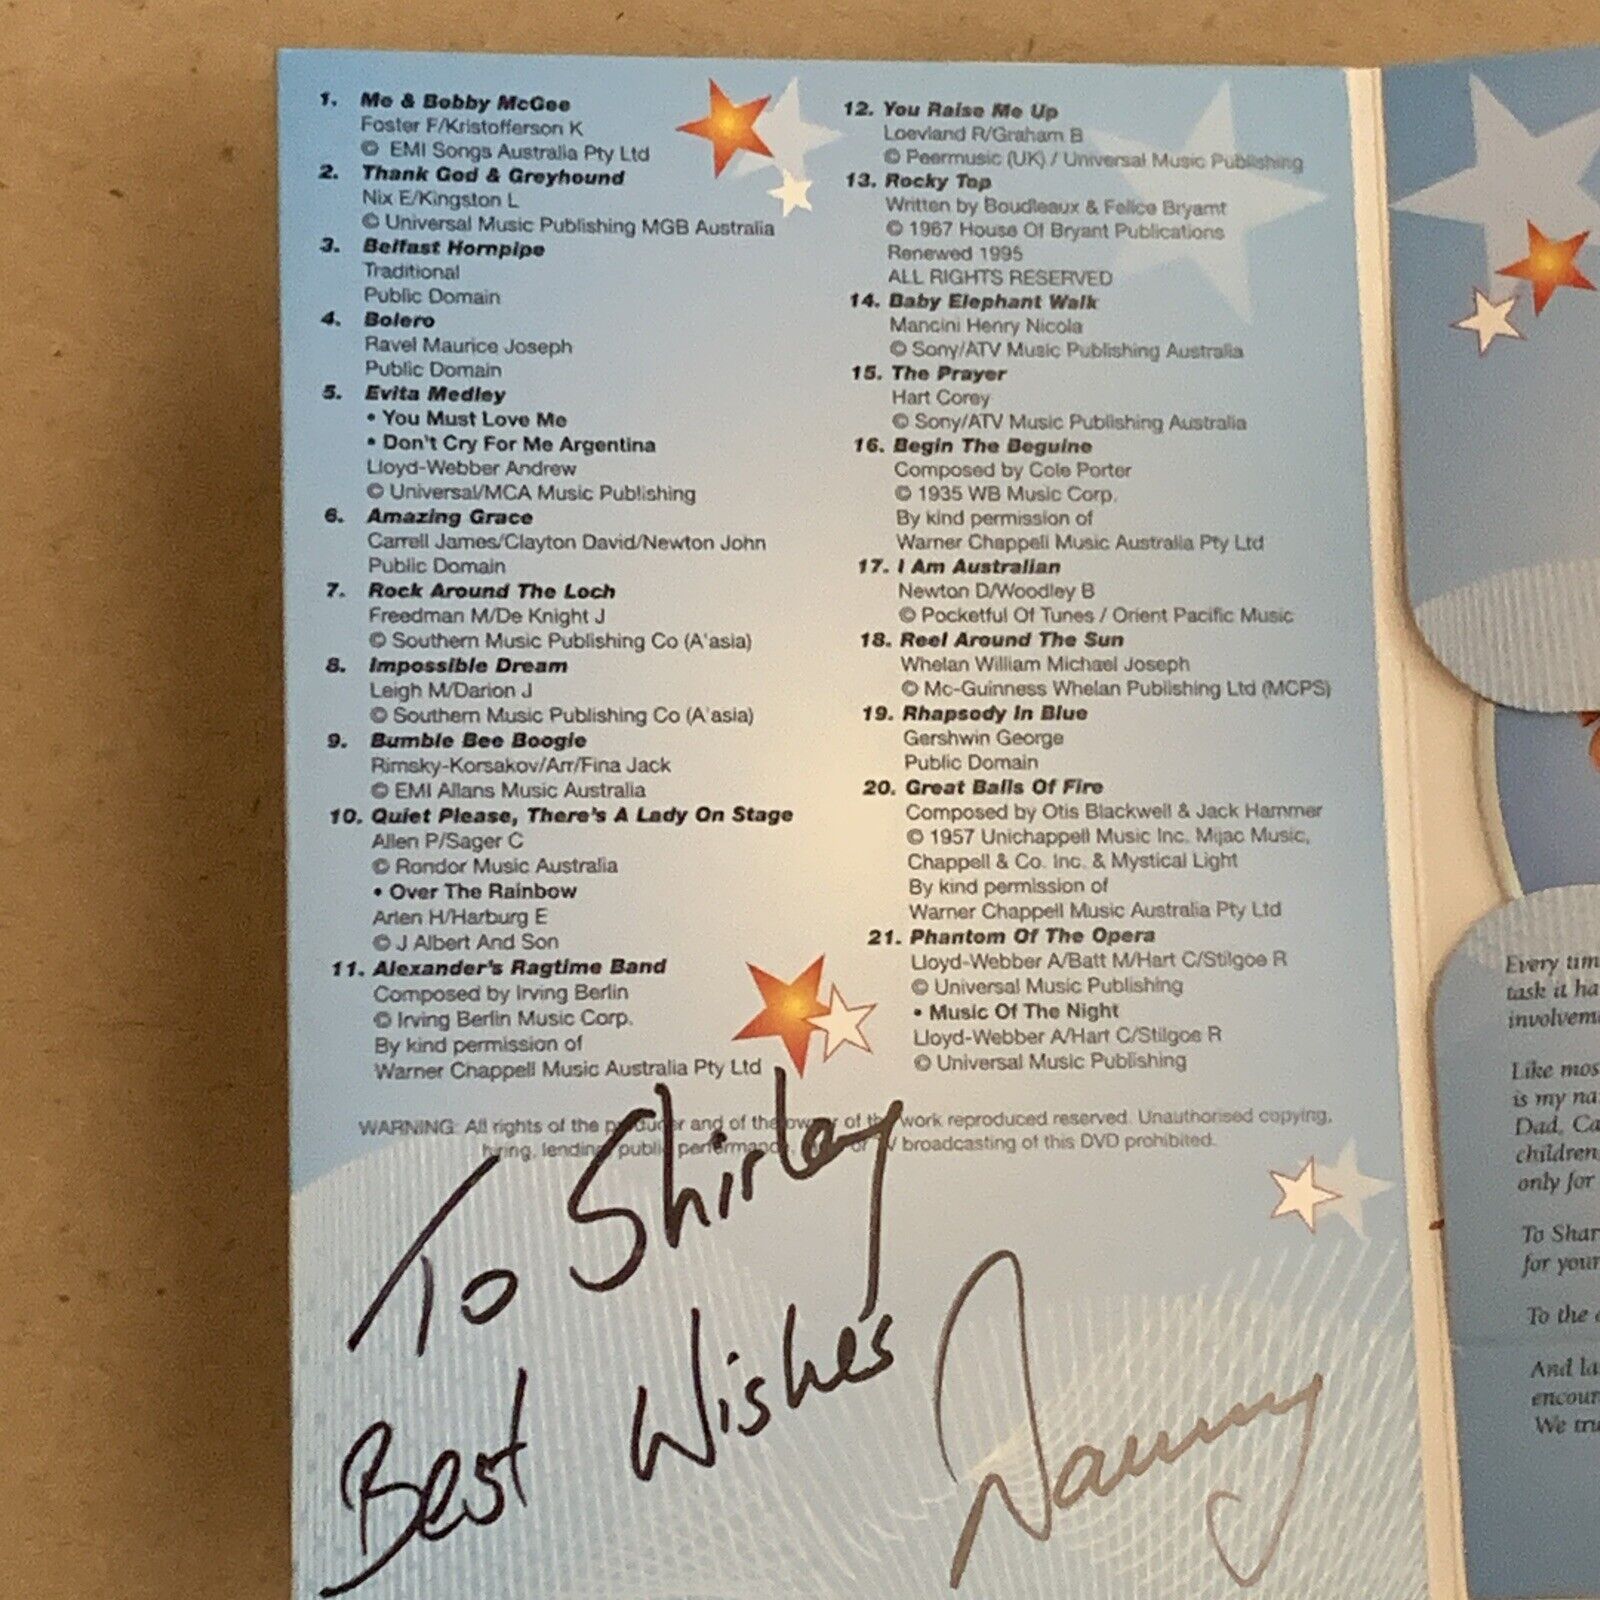 1. Me & Bobby McGee
Foster F/Kristofferson K
© EMI Songs Australia Pty Ltd
2. Thank God & Greyhound
Nix E/Kingston L
© Universal Music Publishing MGB Australia
3. Belfast Hornpipe
Traditional
Public Domain
4. Bolero
Ravel Maurice Joseph
Public Domain
5. Evita Medley
• You Must Love Me
• Don't Cry For Me Argentina
Lloyd-Webber Andrew
© Universal/MCA Music Publishing
6. Amazing Grace
Carrell James/Clayton David/Newton John
Public Domain
7. Rock Around The Loch
Freedman M/De Knight J
© Southern Music Publishing Co (A'asia)
8. Impossible Dream
Leigh M/Darion J
© Southern Music Publishing Co (A'asia)
9. Bumble Bee Boogie
Rimsky-Korsakov/Arr/Fina Jack
© EMI Allans Music Australia
10. Quiet Please, There's A Lady On Stage
Allen P/Sager C
© Rondor Music Australia
• Over The Rainbow
Arlen H/Harburg E
© J Albert And Son
11. Alexander's Ragtime Band
Composed by Irving Berlin
© Irving Berlin Music Corp.
By kind permission of
Warner Chappell Music Australia Pty Ltd
12. You Raise Me Up
Loevland R/Graham B
© Peermusic (UK) / Universal Music Publishing
13. Rocky Top
Written by Boudleaux & Felice Bryamt
© 1967 House Of Bryant Publications
Renewed 1995
ALL RIGHTS RESERVED
14. Baby Elephant Walk
Mancini Henry Nicola
© Sony/ATV Music Publishing Australia
15. The Prayer
Hart Corey
© Sony/ATV Music Publishing Australia
16. Begin The Beguine
Composed by Cole Porter
© 1935 WB Music Corp.
By kind permission of
Warner Chappell Music Australia Pty Ltd
17. I Am Australian
Newton D/Woodley B
© Pocketful Of Tunes / Orient Pacific Music
18. Reel Around The Sun
Whelan William Michael Joseph
© Mc-Guinness Whelan Publishing Ltd (MCPS)
19. Rhapsody In Blue
Gershwin George
Public Domain
20. Great Balls Of Fire
Composed by Otis Blackwell & Jack Hammer
© 1957 Unichappell Music Inc. Mijac Music,
Chappell & Co. Inc. & Mystical Light
By kind permission of
Warner Chappell Music Australia Pty Ltd
21. Phantom Of The Opera
Lloyd-Webber A/Batt M/Hart C/Stilgoe R
© Universal Music Publishing
• Music Of The Night
Lloyd-Webber A/Hart C/Stilgoe R
© Universal Music Publishing
WARNING: All rights of the producer and of the owner of the work reproduced reserved. Unauthorised copying,
hiring, lending, public performance, broadcasting of this DVD prohibited.
To Shirley
Best Wishes
Every
task it
Like
is my
Dad,
children,
only for
To
for
To the
And
We